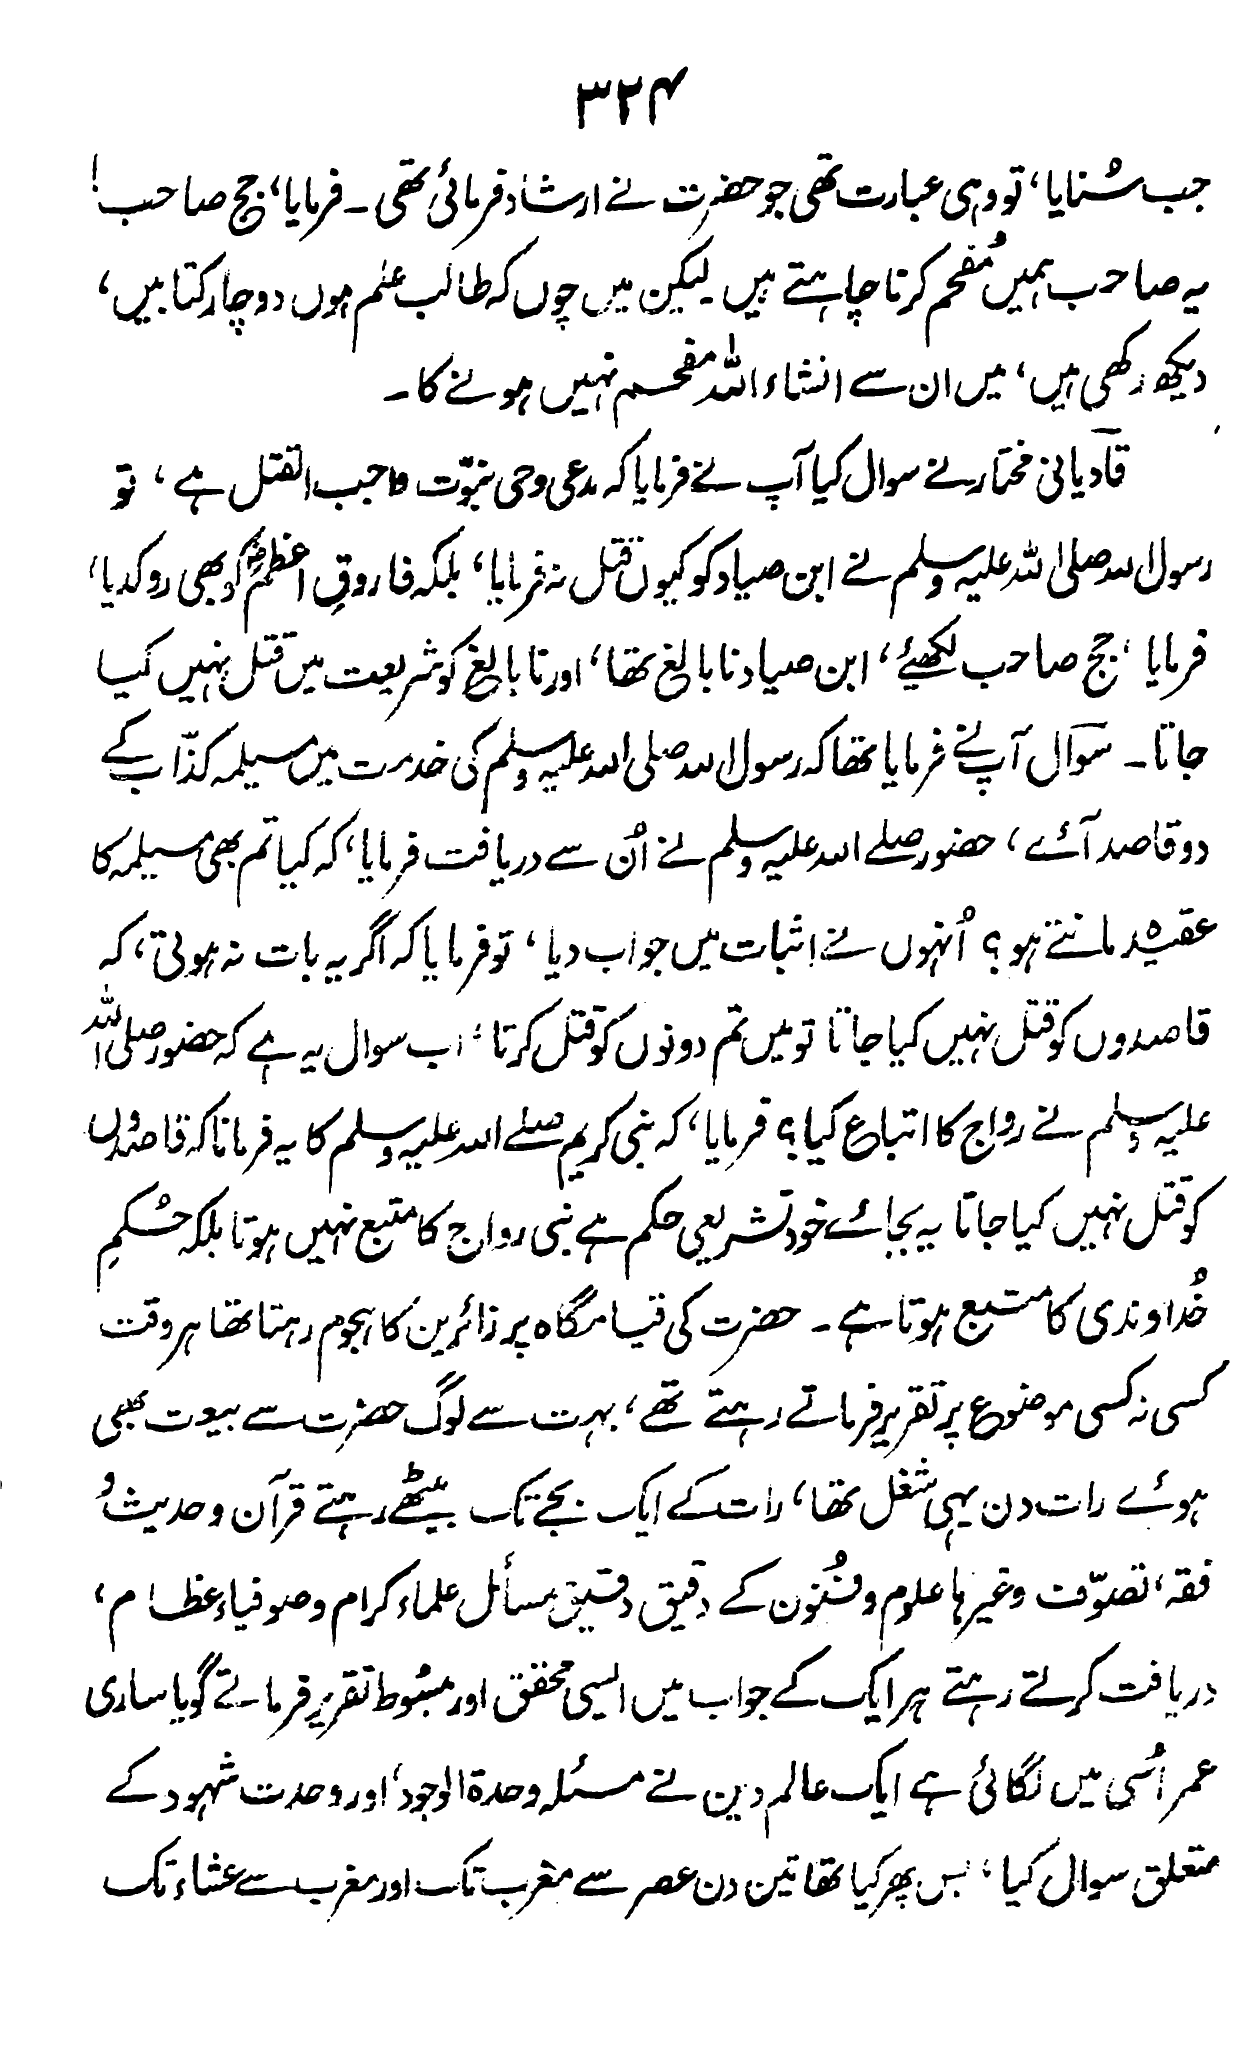 ۳۲۴
جب سُنایا، تو وہی عبارت تھی جو حضرت نے ارشاد فرمائی تھی ۔ فرمایا، جج صاحب !
یہ صاحب ہمیں مُفحم کرنا چاہتے ہیں لیکن میں چوں کہ طالب علم ہوں دو چار کتابیں،
دیکھ رکھی ہیں، میں ان سے انشاء اللہ مفحم نہیں ہونے کا ۔
قادیانی مختار نے سوال کیا آپ نے فرمایا کہ مدعی وحی نبوّت واجب القتل ہے، تو
رسول اللہ صلی اللہ علیہ وسلم نے ابن صیاد کو کیوں قتل نہ فرمایا، بلکہ فاروقِ اعظمؓ کو بھی روکدیا،
فرمایا، جج صاحب لکھیئے، ابن صیاد نا بالغ تھا، اور نا بالغ کو شریعت میں قتل نہیں کیا
جاتا ۔ سوال آپ نے فرمایا تھا کہ رسول اللہ صلی اللہ علیہ وسلم کی خدمت میں مسیلمہ کذّاب کے
دو قاصد آئے، حضور صلے اللہ علیہ وسلم نے اُن سے دریافت فرمایا، کہ کیا تم بھی مسیلمہ کا
عقیدہ مانتے ہو ؟ اُنہوں نے اثبات میں جواب دیا، تو فرمایا کہ اگر یہ بات نہ ہوتی، کہ
قاصدوں کو قتل نہیں کیا جاتا تو میں تم دونوں کو قتل کرتا، اب سوال یہ ہے کہ حضور صلی اللہ
علیہ وسلم نے رواج کا اتباع کیا ؟ فرمایا، کہ نبی کریم صلے اللہ علیہ وسلم کا یہ فرمانا کہ قاصدوں
کو قتل نہیں کیا جاتا یہ بجائے خود تشریعی حکم ہے نبی رواج کا متبع نہیں ہوتا بلکہ حُکمِ
خُداوندی کا متبع ہوتا ہے ۔ حضرت کی قیامگاہ پر زائرین کا ہجوم رہتا تھا ہر وقت
کسی نہ کسی موضوع پر تقریر فرماتے رہتے تھے، بہت سے لوگ حضرت سے بیعت بھی
ہوئے رات دن یہی شغل تھا، رات کے ایک بجے تک بیٹھے رہتے قرآن و حدیث و
فقہ، تصوّف وغیرہا علوم و فُنون کے دقیق دقیق مسائل علماء کرام و صوفیاء عظام،
دریافت کرتے رہتے ہر ایک کے جواب میں ایسی محقق اور مبسُوط تقریر فرماتے گویا ساری
عمر اُسی میں لگائی ہے ایک عالم دین نے مسئلہ وحدۃ الوجود، اور وحدت شہود کے
متعلق سوال کیا، بس پھر کیا تھا تین دن عصر سے مغرب تک اور مغرب سے عشاء تک